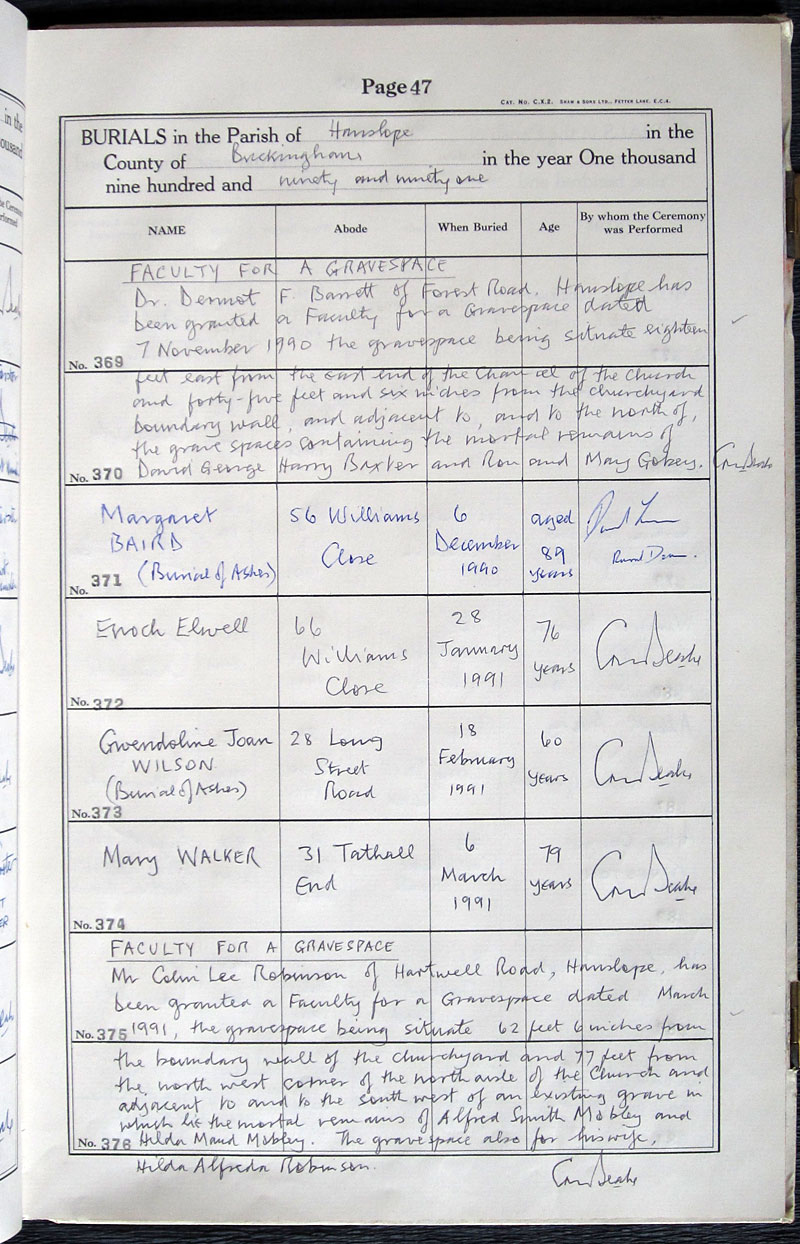 Page 47
CAT. No. C.X.2. SHAW & SONS LTD., FETTER LANE, E.C.4.
BURIALS in the Parish of Hanslope in the
County of Buckinghams in the year One thousand
nine hundred and ninety and ninety one
NAME Abode When Buried Age By whom the Ceremony was Performed
FACULTY FOR A GRAVESPACE
Dr. Dermot F. Barrett of Forest Road, Hanslope has
been granted a Faculty for a Gravespace dated
7 November 1990 the gravespace being situate eighteen
No. 369
feet east from the east end of the Chancel of the Church
and forty-five feet and six inches from the churchyard
boundary wall, and adjacent to, and to the north of,
the grave spaces containing the mortal remains of
No. 370 David George Harry Baxter and Ron and Mary Gobey.
Margaret 56 Williams 6 aged
BAIRD Close December 89
No. 371 (Burial of Ashes) 1990 years
Enoch Elwell 66 28 76
Williams January years
Close 1991
No. 372
Gwendoline Joan 28 Long 18 60
WILSON Street February years
(Burial of Ashes) Road 1991
No. 373
Mary WALKER 31 Tathall 6 79
End March years
1991
No. 374
FACULTY FOR A GRAVESPACE
Mr Colin Lee Robinson of Hartwell Road, Hanslope, has
been granted a Faculty for a Gravespace dated March
No. 375 1991, the gravespace being situate 62 feet 6 inches from
the boundary wall of the churchyard and 77 feet from
the north west corner of the north aisle of the Church and
adjacent to and to the south west of an existing grave in
which lie the mortal remains of Alfred Smith Mobley and
No. 376 Hilda Maud Mobley. The gravespace also for his wife,
Hilda Alfreda Robinson.